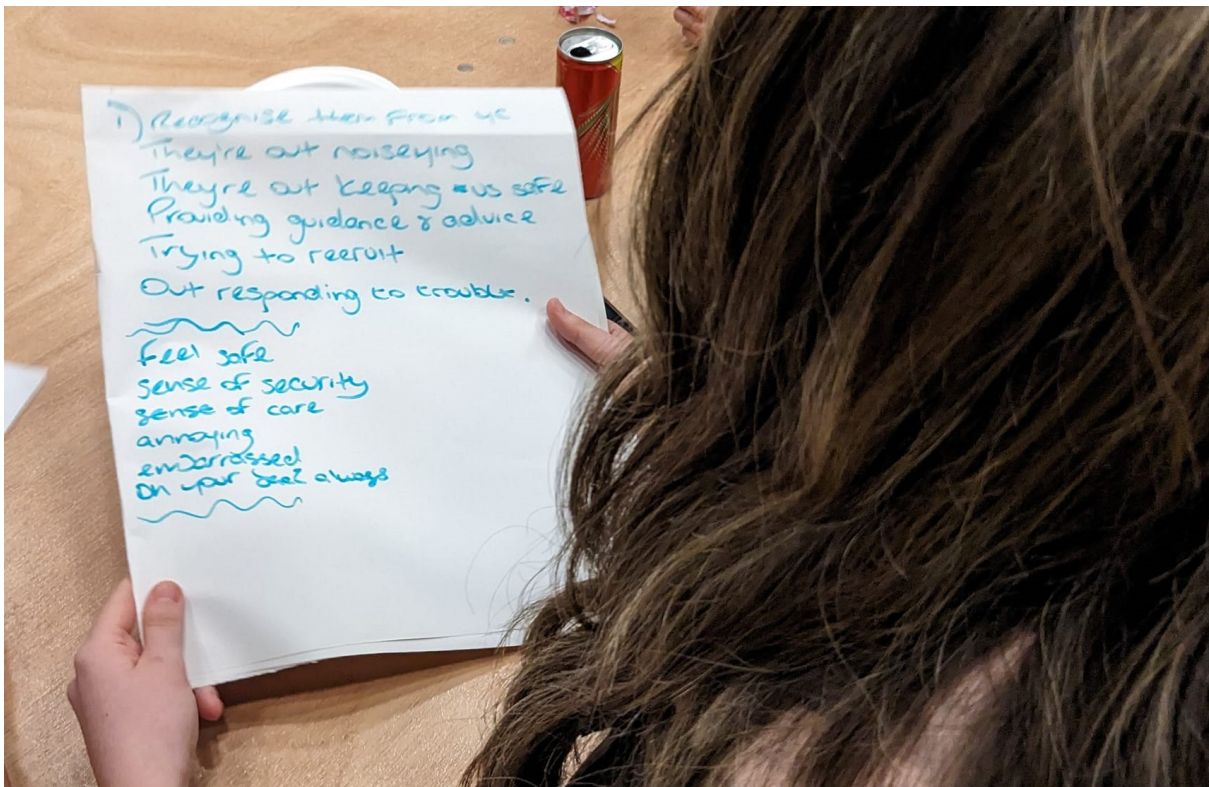 1) Recognise them from yc
They're out noiseying
They're out keeping us safe
Providing guidance & advice
Trying to recruit
Out responding to trouble.
feel safe
sense of security
sense of care
annoying
embarrassed
on your always